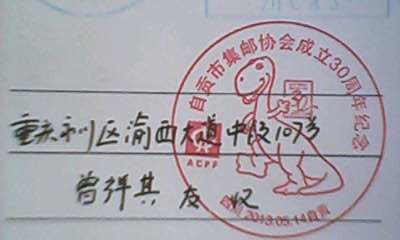 自贡市集邮协会成立30周年纪念
30
ACPF
四川 2013.05.14 自贡
重庆永川区渝西大道中段107号
曾祥其友 收